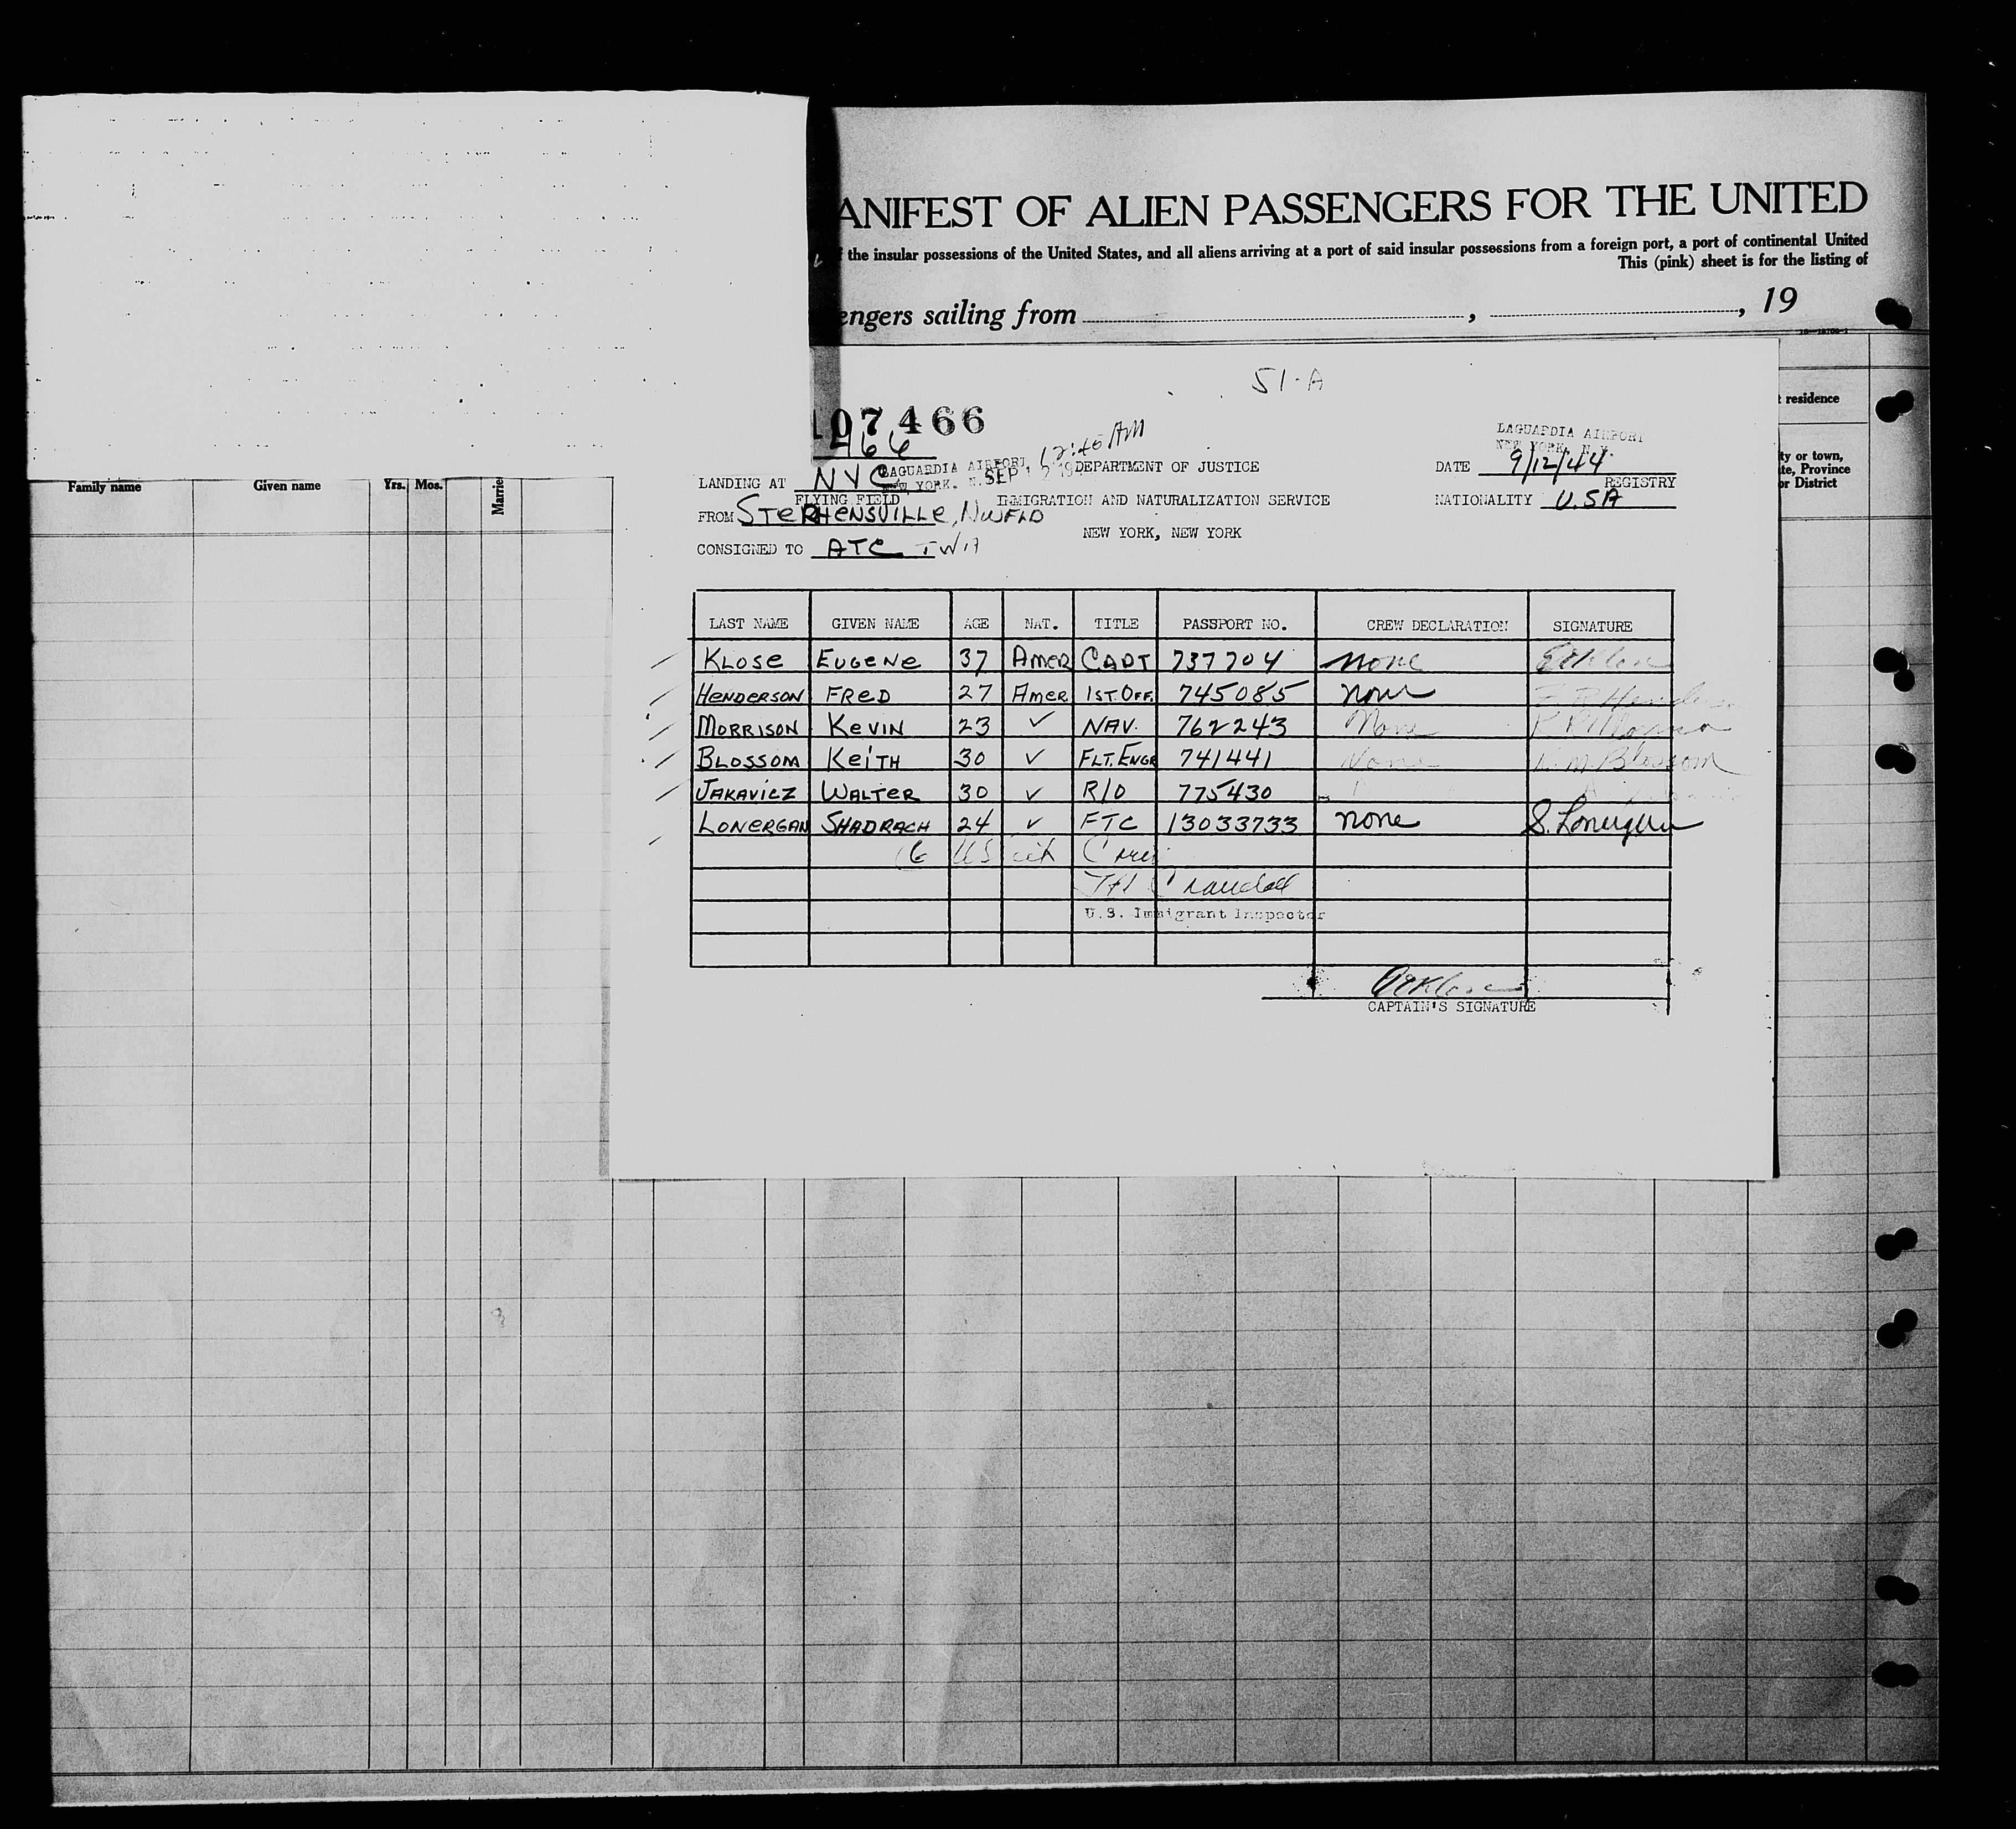 ANIFEST OF ALIEN PASSENGERS FOR THE UNITED
the insular possessions of the United States, and all aliens arriving at a port of said insular possessions from a foreign port, a port of continental United
This (pink) sheet is for the listing of
engers sailing from , , 19
51-A
107466
466
12:40 AM
LAGUARDIA AIRPORT
NEW YORK, N.Y.
t residence
ty or town,
te, Province
or District
Family name Given name Yrs. Mos. Married
LAGUARDIA AIRPORT
NEW YORK. N. SEP 12 19
DEPARTMENT OF JUSTICE
DATE 9/12/44
LANDING AT NYC
FLYING FIELD
IMMIGRATION AND NATURALIZATION SERVICE
REGISTRY
NATIONALITY U.SA
FROM STEPHENSVILLE, NWFLD
NEW YORK, NEW YORK
CONSIGNED TO ATC TWA
LAST NAME GIVEN NAME AGE NAT. TITLE PASSPORT NO. CREW DECLARATION SIGNATURE
KLOSE EUGENE 37 AMER CAPT 737704 none
HENDERSON FRED 27 AMER 1ST.OFF. 745085 none
MORRISON KEVIN 23 ✓ NAV. 762243 None
BLOSSOM KEITH 30 ✓ FLT.ENGR 741441 None K. M. Blossom
JAKAVICZ WALTER 30 ✓ R/O 775430
LONERGAN SHADRACH 24 ✓ FTC 13033733 none S. Lonergan
6 US cit Crew
Crandall
U.S. Immigrant Inspector
CAPTAIN'S SIGNATURE